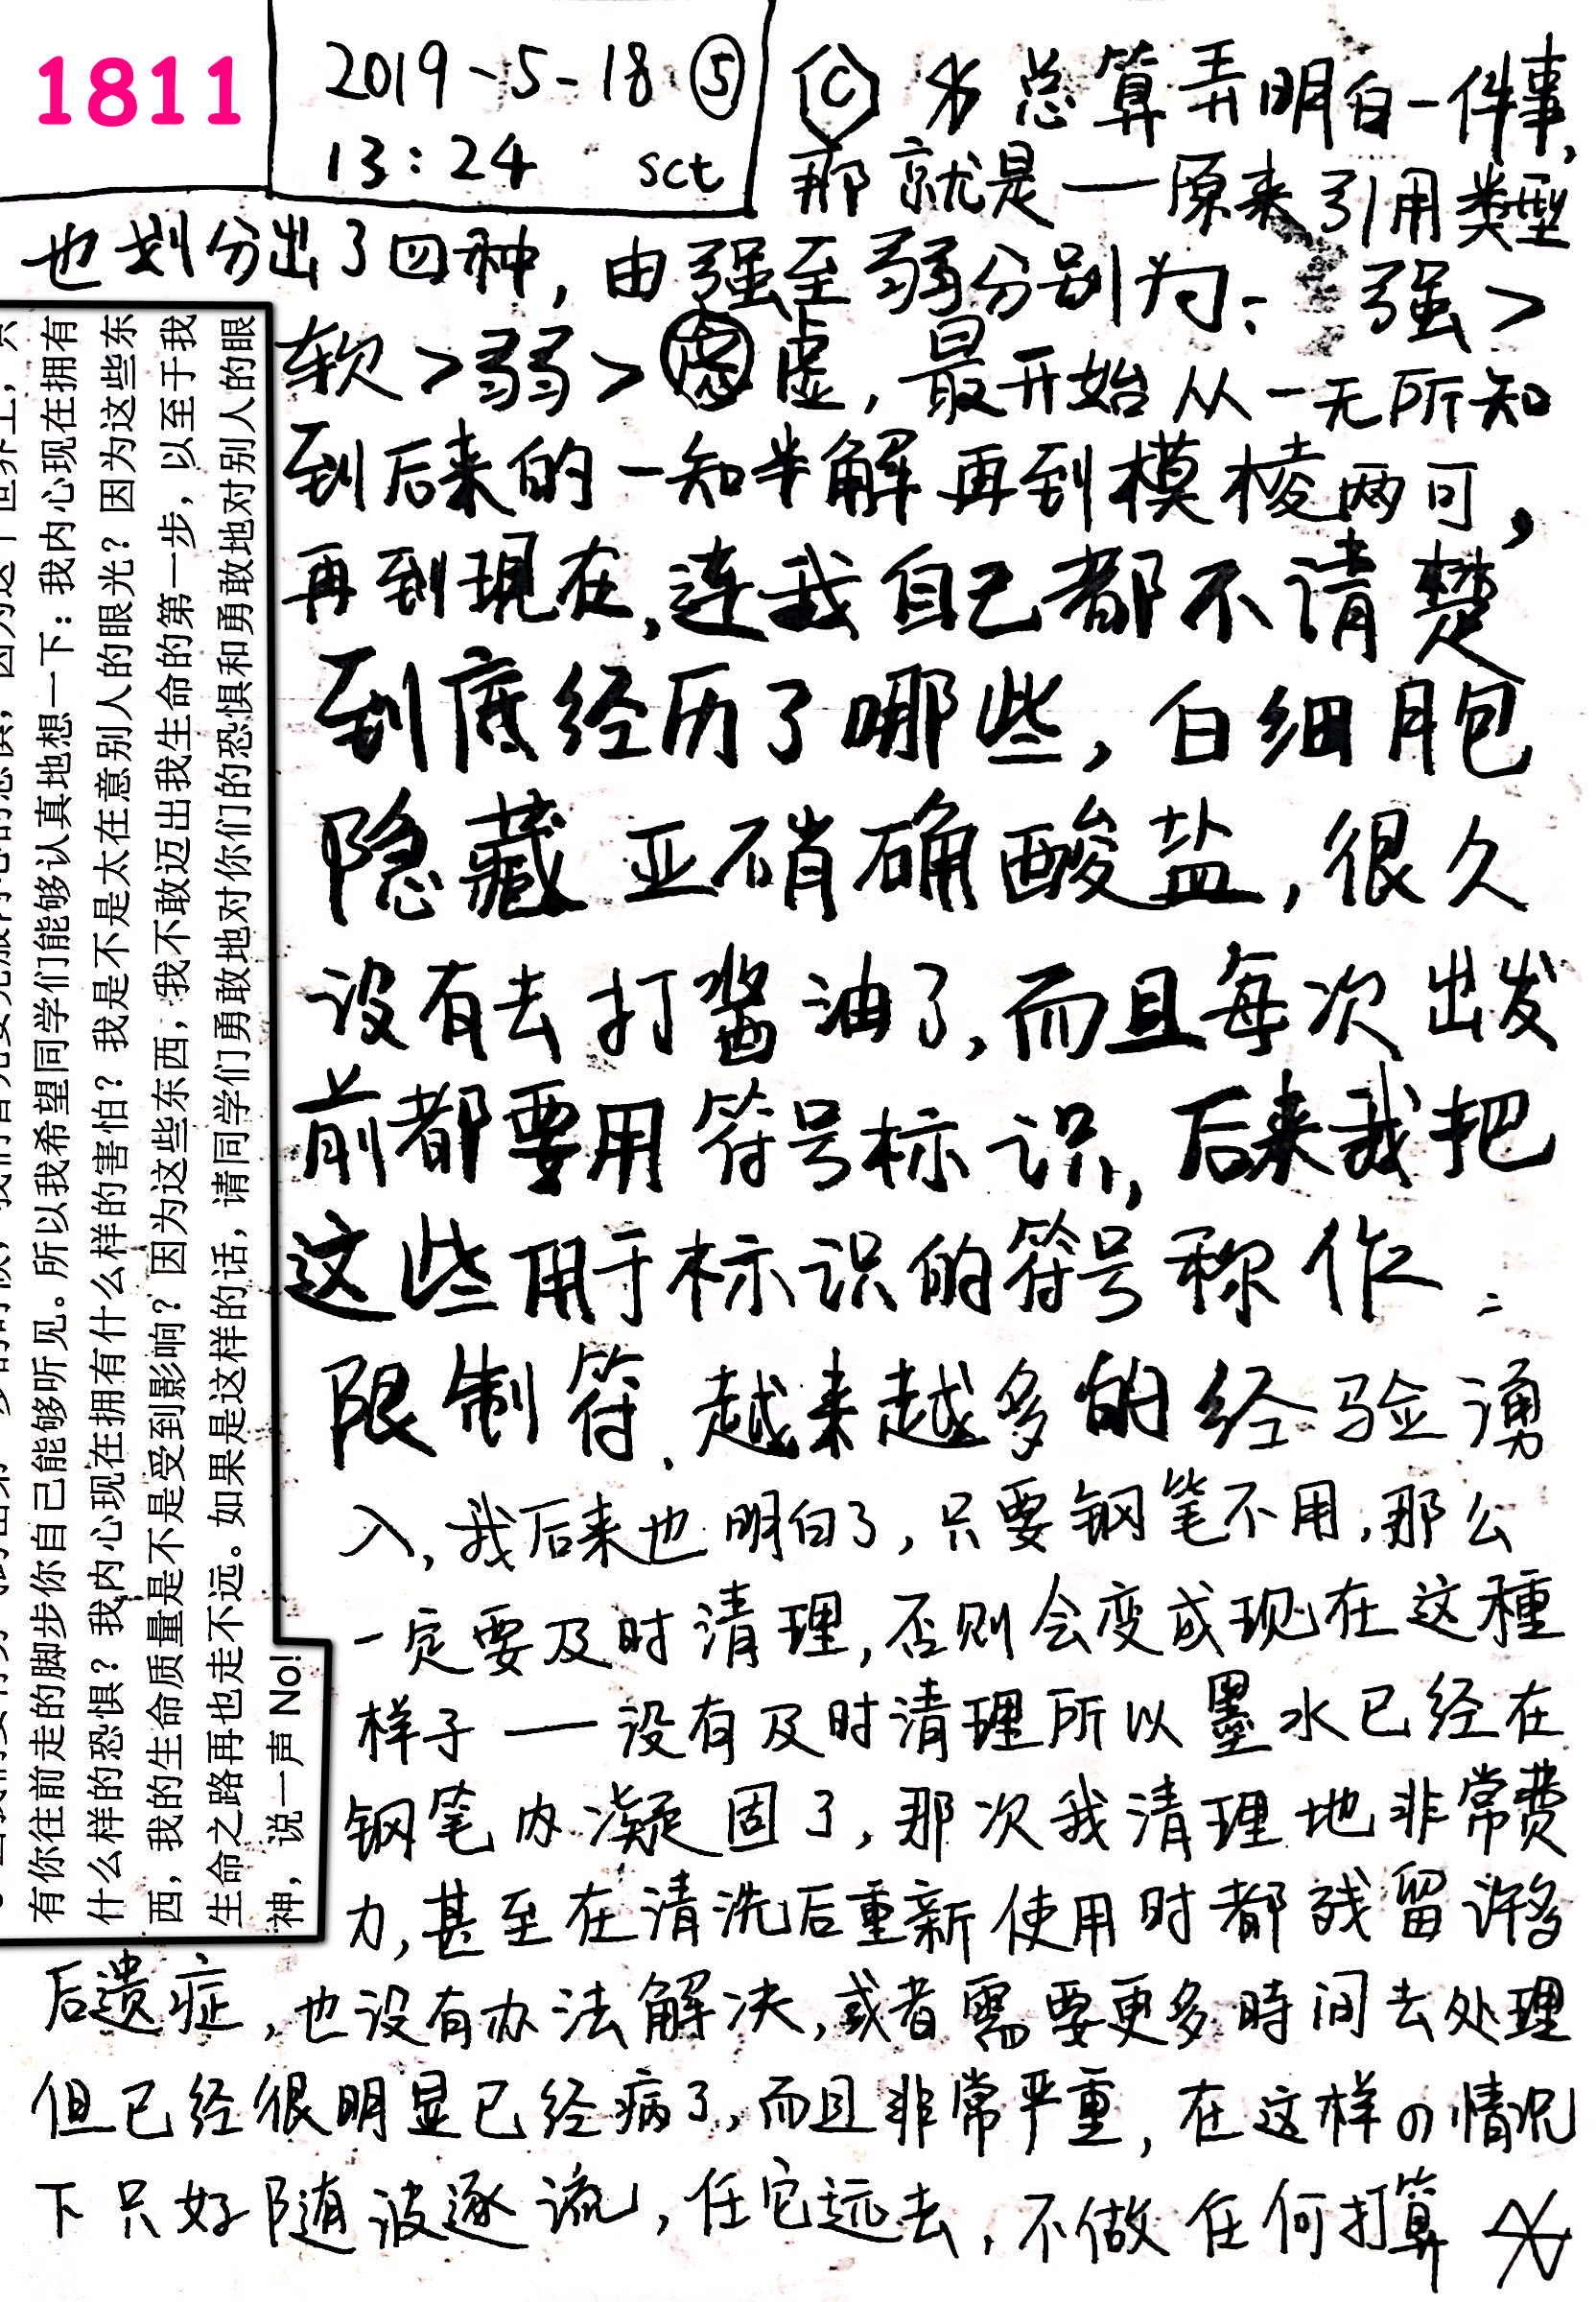 1811
2019-5-18 ⑤
13:24 sct
C 总算弄明白一件事,
那就是一原来引用类型
也划分出了四种, 由强至弱分别为: 强>
软>弱>虚, 最开始从一无所知
到后来的一知半解再到模棱两可,
再到现在,连我自己都不请楚
到底经历了哪些, 白细胞
隐藏亚硝确酸盐, 很久
没有去打酱油了,而且每次出发
前都要用符号标识, 后来我把
这些用于标识的符号称作:
限制符.越来越多的经验湧
入,我后来也明白了,只要钢笔不用,那么
一定要及时清理,否则会变成现在这種
样子一没有及时清理所以墨水已经在
钢笔内凝固了,那次我清理地非常费
力,甚至在清洗后重新使用时都残留许多
后遗症,也没有办法解决,或者需要更多時间去处理
但已经很明显已经病了,而且非常严重,在这样の情况
下只好随波逐流,任它远去,不做任何打算
有你往前走的脚步你自己能够听见。所以我希望同学们能够认真地想一下：我内心现在拥有
什么样的恐惧？我内心现在拥有什么样的害怕？我是不是太在意别人的眼光？因为这些东
西，我的生命质量是不是受到影响？因为这些东西，我不敢迈出我生命的第一步，以至于我
生命之路再也走不远。如果是这样的话，请同学们勇敢地对你们的恐惧和勇敢地对别人的眼
神，说一声 No!